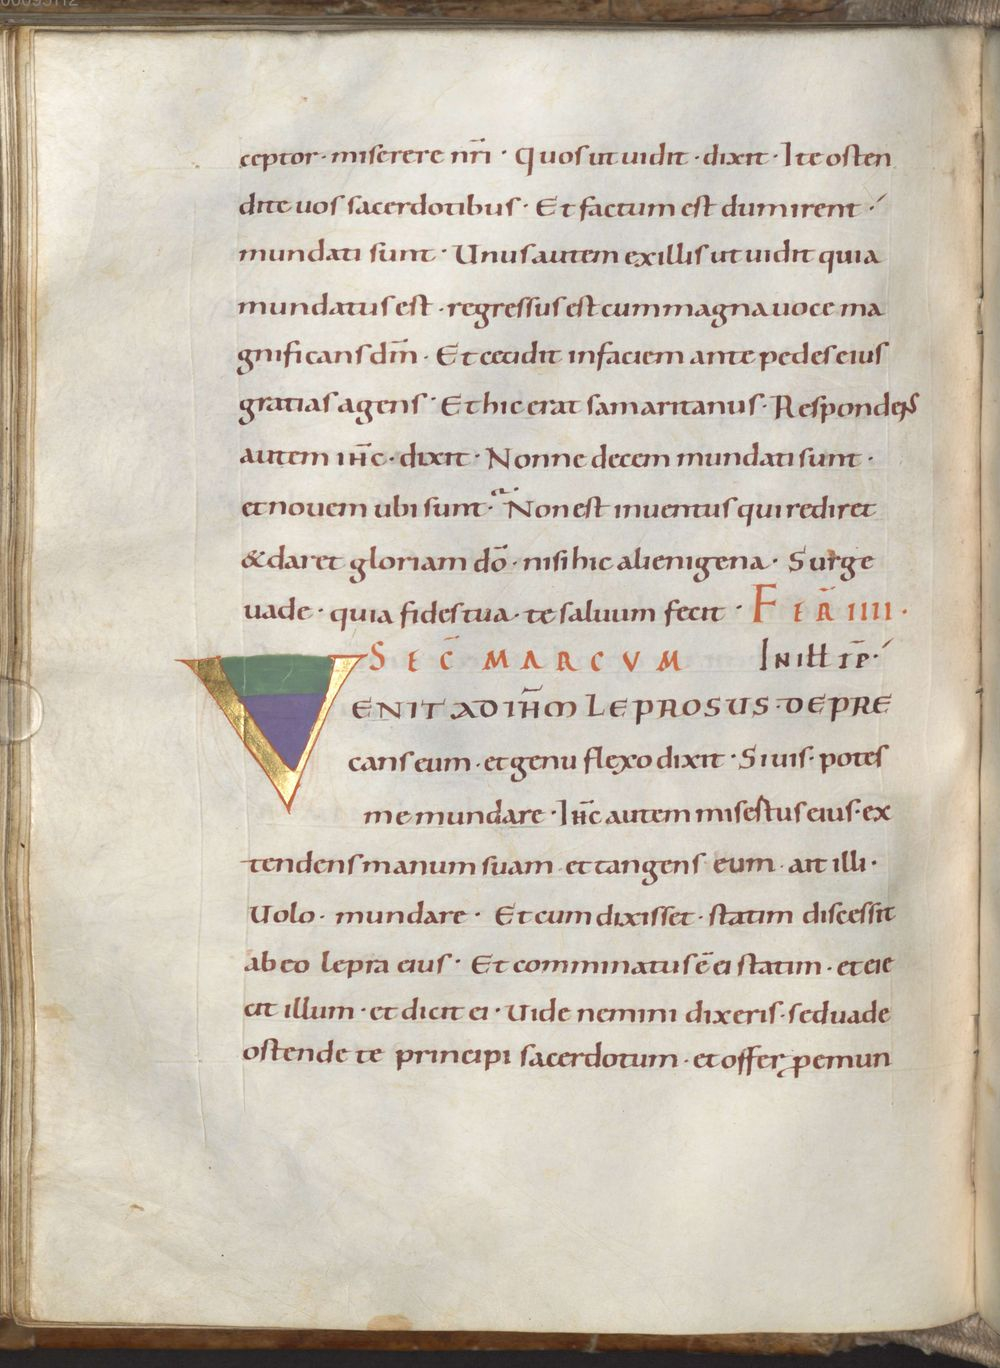 ceptor · miserere nr̄i · Quos ut uidit · dixit · Ite osten
dite uos sacerdotibus · Et factum est dum irent ·
mundati sunt · Unus autem ex illis ut uidit quia
mundatus est · regressus est cum magna uoce ma
gnificans dm̄ · Et cecidit in faciem ante pedes eius
gratias agens · Et hic erat samaritanus · Respondens
autem ihc̄ · dixit · Nonne decem mundati sunt ·
et nouem ubi sunt · Non est inuentus qui rediret
& daret gloriam dō · nisi hic alienigena · Surge
uade · quia fides tua · te saluum fecit · FER̄ IIII ·
SEC̄ MARCVM In ill̄ tēp ·
VENIT AD IHM̄ LEPROSUS · DEPRE
cans eum · et genu flexo dixit · Si uis · potes
me mundare · Ihc̄ autem misertus eius · ex
tendens manum suam · et tangens eum · ait illi ·
Uolo · mundare · Et cum dixisset · statim discessit
ab eo lepra eius · Et comminatus ē ei statim · et eie
cit illum · et dicit ei · Uide nemini dixeris · sed uade
ostende te principi sacerdotum · et offer ꝓ emun